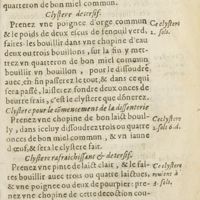 quarteron de bon miel commun.
Clystere detersif.
Prenez vne poignee d'orge commun
& le poids de deux escus de fenouil verd,
faites-les bouillir dans vne chopine d'eau
deux ou trois bouillons, sur la fin y met-
trez vn quarteron de bon miel commun
bouillir vn bouillon, pour le dissoudre
auec, en fin passerez le tout, & dans ce qui
sera passé, deux onces de bon
beurre frais, c'est le clystere que dõnerez.
Clystere pour le cõmencement de la dissenterie
Prenez vne chopine de bon laict bouil-
ly, dans iceluy dissoudrez trois ou quatre
onces de bon miel commun, & vn iaune
d'œuf, & sera le clystere fait.
Clystere rafraichissant & detersif.
Prenez vne pinte de laict clair, & le fai-
tes bouillir auec trois ou quatre laictues,
& vne poignee ou deux de pourpier: pre-
nez dans ceste decoction cou-
Ce clystere
1. solt.
Ce clystere
1. solt.
Ce clystere